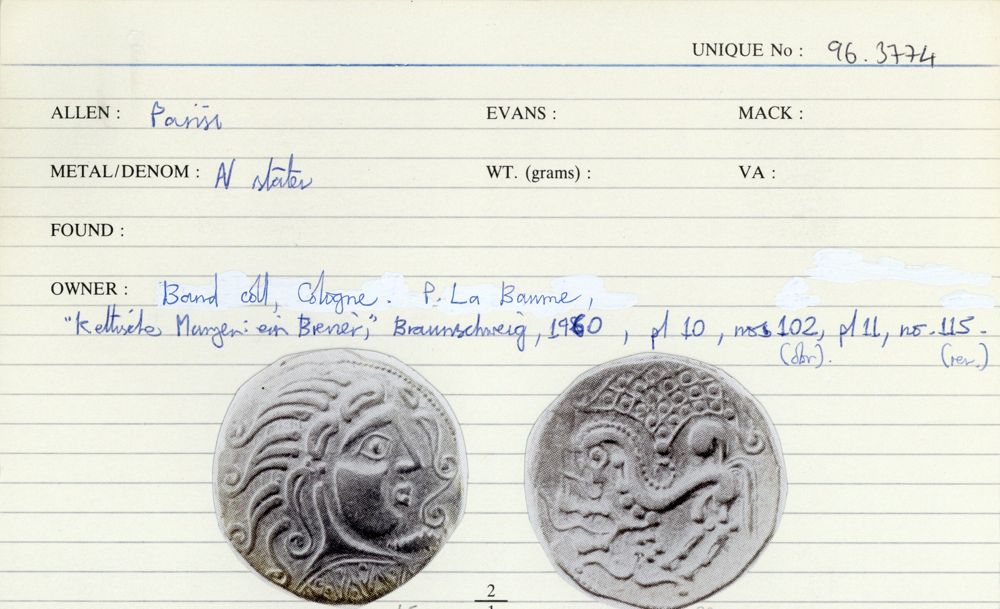 UNIQUE No : 96.3774
ALLEN : Parisi EVANS : MACK :
METAL/DENOM : N stater WT. (grams) : VA :
FOUND :
OWNER : Band coll, Cologne. P. La Baume,
"Keltische Munzen: ein Brevier," Braunschweig, 1960, pl 10, nos 102, pl 11, no. 115.
(obv). (rev.)
2
1